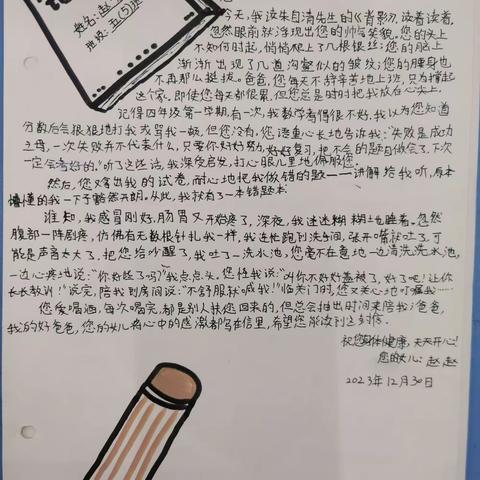 姓名:赵
班级:五(四)班
今天,我读朱自清先生的《背影》,读着读着,
忽然眼前就浮现出您的帅气笑貌。您的头上
不知何时起,悄悄爬上了几根银丝;您的脸上
渐渐出现了几道沟壑似的皱纹;您的腰身也
不再那么挺拔。爸爸,您每天不辞辛苦地上班,只为撑起
这个家。即使您每天都很累,但您总是时时把我放在心头上。
记得四年级第一学期,有一次,我数学考得很不好,我以为您知道
分数后会狠狠地打我或骂我一顿,但您没有,您语重心长地告诉我:“失败是成功
之母,一次失败并不代表什么,只要你好好努力,好好复习,把不会的题目做会了,下次
一定会考好的。”听了这些话,我深受启发,打心眼儿里地佩服您。
然后,您又拿出我的试卷,耐心地把我做错的题一一讲解给我听,原本
懵懂的我一下子豁然开朗,从此,我就有了一本错题本。
谁知,我感冒刚好,肠胃又开始疼了,深夜,我迷迷糊糊地睡着。忽然
腹部一阵剧疼,仿佛有无数根针扎我一样,我连忙跑到洗手间,张开嘴就吐了,可
能是声音太大了,把您给吵醒了,我吐了一洗水池,您毫不在意地一边清洗洗水池,
一边心疼地说:“你好些了吗?”我点点头。您怪我说:“叫你不好好盖被了,好了吧!让你
长长教训!”说完,陪我到房间说:“不舒服就喊我!”临关门时,您又关心地叮嘱我……
您爱喝酒,每次喝完,都是别人扶您回来的,但总会抽出时间来陪我。爸爸,
我的好爸爸,您的女儿将心中的感激都写在信里,希望您能读到这封信。
祝您身体健康,天天开心!
您的女儿:赵赵
2023年12月30日